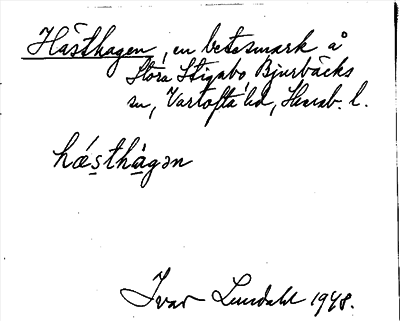 Hästhagen, en betesmark å
Stora Stigabo, Bjurbäcks
sn, Vartofta hd, Skarab. l.
hǽsthàgən
Ivar Lundahl 1948.